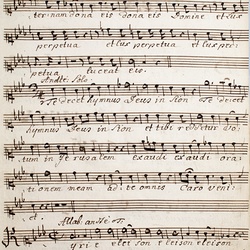 ternam dona eis dona eis Domine et lux
perpetua et lux perpetua et lux per
petua luceat eis.
Andte Solo
Te decet hymnus Deus in Sion Te decet
hymnus Deus in Sion et tibi reddetur vo
tum in Jerusalem exaudi exaudi ora
tionem meam ad te omnis Caro veni
et.
Allab: andte
Kyrie eleison eleison eleison